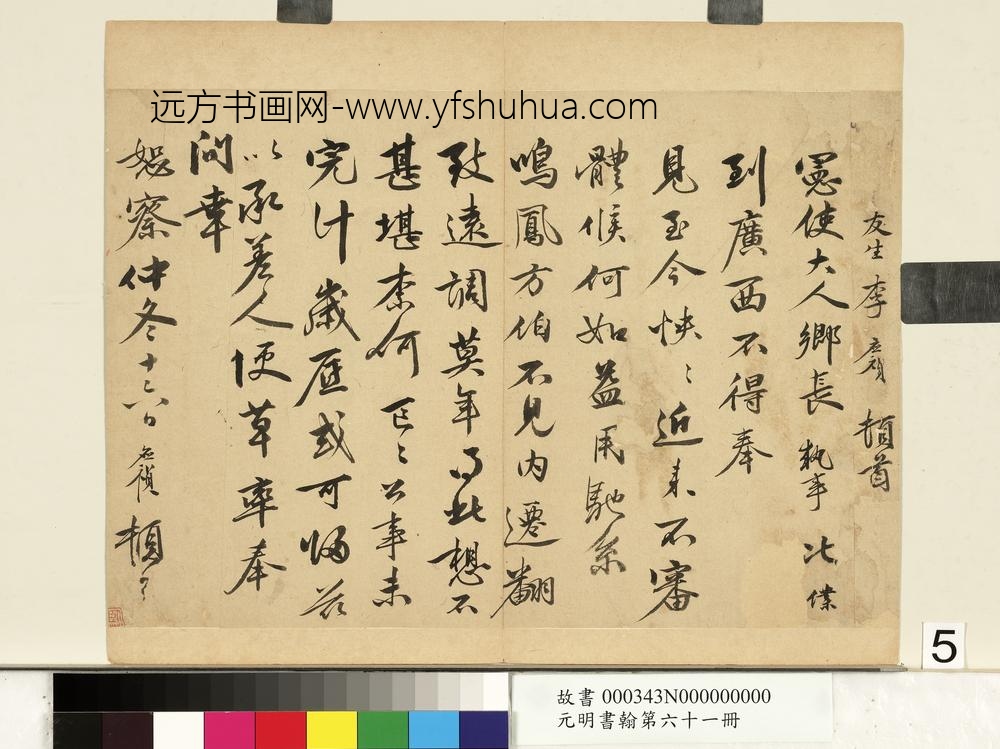 远方书画网-www.yfshuhua.com
友生李應禎頓首
憲使大人鄉長執事比僕
到廣西不得奉
見至今怏〻近來不審
體候何如益用馳系
鳴鳳方伯不見内遷翻
致遠調莫年了此想不
甚堪柰何〻公事未
完計歲底或可歸茲
以承差人便草率奉
問幸
恕察仲冬十六日應禎頓首
5
故書 000343N000000000
元明書翰第六十一冊